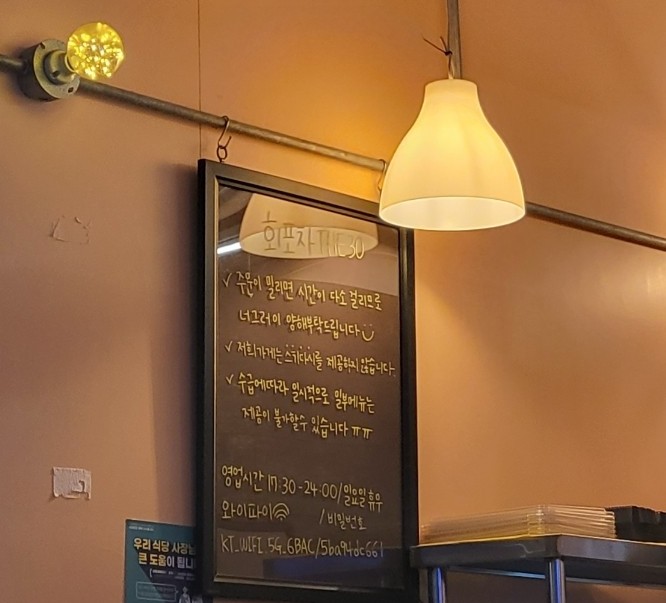 회포차 THE30
✓ 주문이 밀리면 시간이 다소 걸리므로
너그러이 양해부탁드립니다
✓ 저희가게는 스키다시를 제공하지 않습니다.
✓ 수급에따라 일시적으로 일부메뉴는
제공이 불가할수 있습니다 ㅠㅠ
영업시간 17:30-24:00/일요일휴무
와이파이 /비밀번호
KT_WIFI_5G_6BAC/5ba94dc661
우리 식당 사장님
큰 도움이 됩니